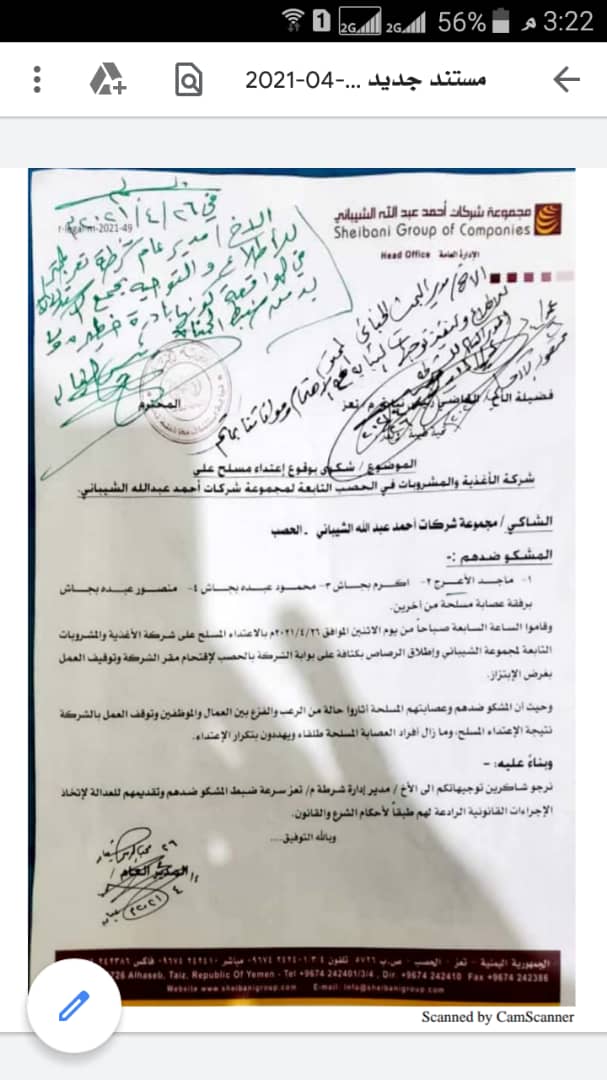 3:22 م 56% 2G 2G 1
مستند جديد ...-04-2021
r-legal-m-2021-49
مجموعة شركات أحمد عبد الله الشيباني
Sheibani Group of Companies
Head Office الإدارة العامة
في ٢٦/٤/٢٠٢١م
الاخ/ مدير عام شرطة تعز
للاطلاع والتوجيه
الاخ/ مدير البحث الجنائي
فضيلة القاضي/
تعز
المحترم
الموضوع / شكوى بوقوع إعتداء مسلح على
شركة الأغذية والمشروبات في الحصب التابعة لمجموعة شركات أحمد عبدالله الشيباني.
الشاكي / مجموعة شركات أحمد عبد الله الشيباني .. الحصب
المشكو ضدهم :-
١- ماجد الأعرج ٢- اكرم بجاش ٣- محمود عبده بجاش ٤- منصور عبده بجاش
برفقة عصابة مسلحة من آخرين.
وقاموا الساعة السابعة صباحاً من يوم الاثنين الموافق ٢٠٢١/٤/٢٦م بالاعتداء المسلح على شركة الأغذية والمشروبات
التابعة لمجموعة الشيباني وإطلاق الرصاص بكثافة على بوابة الشركة بالحصب لإقتحام مقر الشركة وتوقيف العمل
بغرض الإبتزاز.
وحيث أن المشكو ضدهم وعصابتهم المسلحة أثاروا حالة من الرعب والفزع بين العمال والموظفين وتوقف العمل بالشركة
نتيجة الإعتداء المسلح، وما زال افراد العصابة المسلحة طلقاء ويهددون بتكرار الإعتداء.
وبناءً عليه: -
نرجو شاكرين توجيهاتكم الى الأخ / مدير إدارة شرطة م/ تعز سرعة ضبط المشكو ضدهم وتقديمهم للعدالة لإتخاذ
الإجراءات القانونية الرادعة لهم طبقاً لأحكام الشرع والقانون.
وبالله التوفيق....
المدير العام /
الجمهورية اليمنية - تعز - الحصب - ص.ب ٥٧٢٦ تلفون
726 Alhaseb, Taiz, Republic Of Yemen - Tel +9674 242401/3/4 , Dir +9674 242410 Fax +9674 242386
Website www.sheibanigroup.com E-mail: info@sheibanigroup.com
Scanned by CamScanner